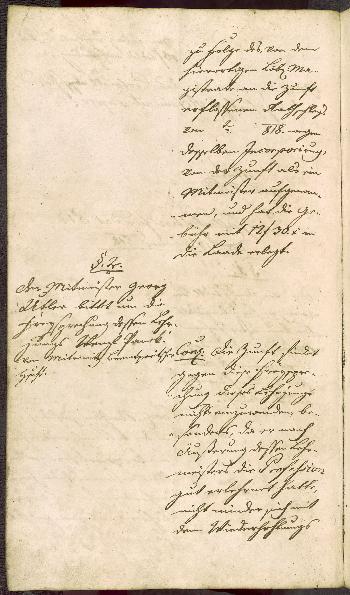 zu Folge des, von dem
hierortigen Löbl. Ma-
gistrate an die Zunft
erflossenen Rathschlags
von 818. wegen
desselben Incorporirung,
von der Zunft als ein
Mitmeister aufgenom-
men, und hat die Ge-
bühr mit 12 f 30 x in
die Laade erlegt.
§. 2.
Der Mitmeister Georg
Adler bittet um die
Freysprechung dessen Lehr-
jungs
von
Concl. Die Zunft findet
gegen diese Freyspre-
chung dieses Lehrjungs
nichts einzuwenden, be-
sonders, da er nach
Äusserung dessen Lehr-
meisters die Profession
gut erlernet hatte,
nicht minder sich mit
dem Wiederhohlungs